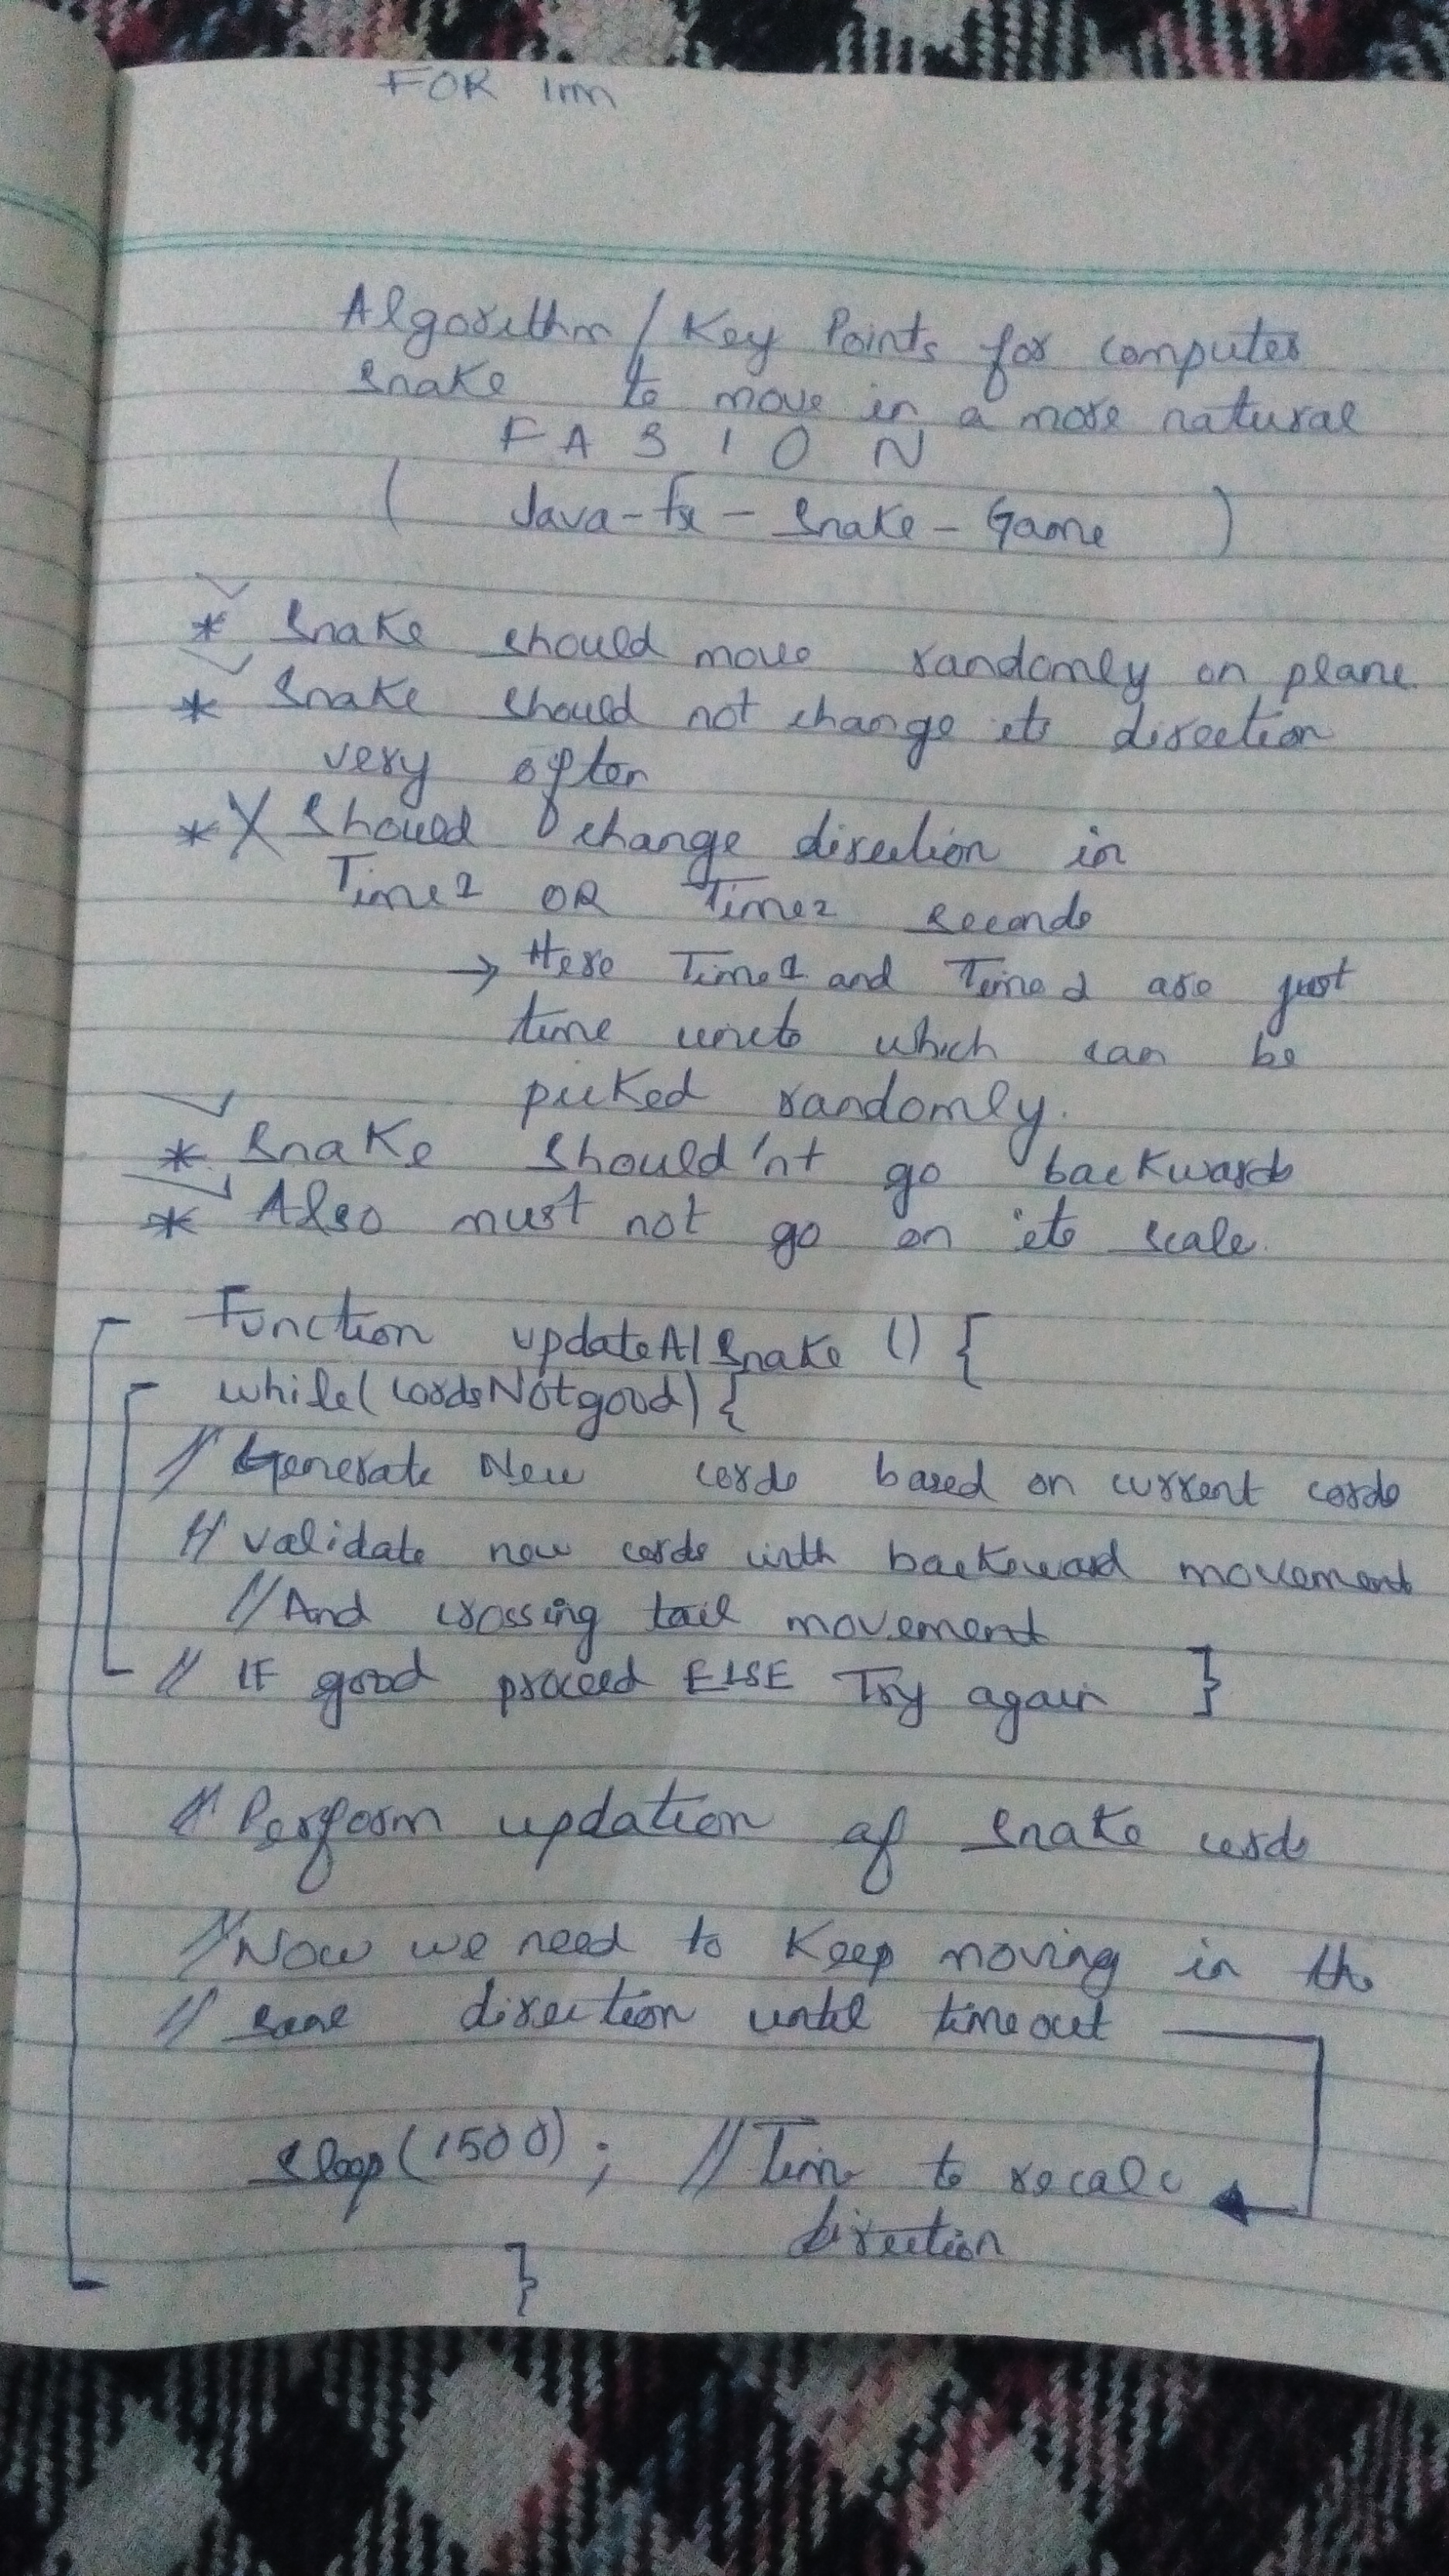 FOR Imn
Algorithm / Key Points for computer
snake to move in a more natural
FASION
( Java-fx - Snake - Game )
* Snake should move randomly on plane
* Snake should not change its direction
very often
* X Should change direction in
Time1 OR Time2 seconds
→ Here Time1 and Time2 are just
time units which can be
picked randomly.
* Snake should'nt go backwards
* Also must not go on its scale.
Function updateAISnake () {
while(cordsNotgood) {
// Generate New cords based on current cords
// validate new cords with backward movement
// And crossing tail movement
// IF good proceed ELSE Try again }
// Perform updation of snake cords
// Now we need to keep moving in the
// same direction until timeout
sleep(1500); // Time to recalc
direction
}